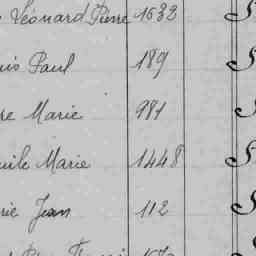 Léonard Pierre 1632
is Paul 189
re Marie 981
uile Marie 1448
rie Jean 112